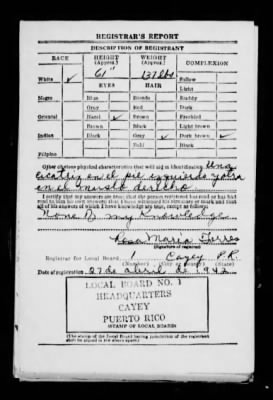 REGISTRAR'S REPORT
DESCRIPTION OF REGISTRANT
RACE HEIGHT (Approx.) WEIGHT (Approx.) COMPLEXION
White ✓ 61" 137 lbs. Sallow
EYES HAIR Light
Negro Blue Blonde Ruddy
Gray Red Dark
Oriental Hazel ✓ Brown Freckled
Brown Black Light brown
Indian Black Gray ✓ Dark brown ✓
Bald Black
Filipino
Other obvious physical characteristics that will aid in identification Una
cicatriz en el pie izquierdo y otra
en el muslo derecho
I certify that my answers are true; that the person registered has read or has had
read to him his own answers; that I have witnessed his signature or mark and that
all of his answers of which I have knowledge are true, except as follows:
None of my Knowledge
Rosa Maria Torres
(Signature of registrar)
Registrar for Local Board 1 Cayey P.R.
(Number) (City or county) (State)
Date of registration 27 de abril de 1942
LOCAL BOARD NO. 1
HEADQUARTERS
CAYEY
PUERTO RICO
(STAMP OF LOCAL BOARD)
(The stamp of the Local Board having jurisdiction of the registrant